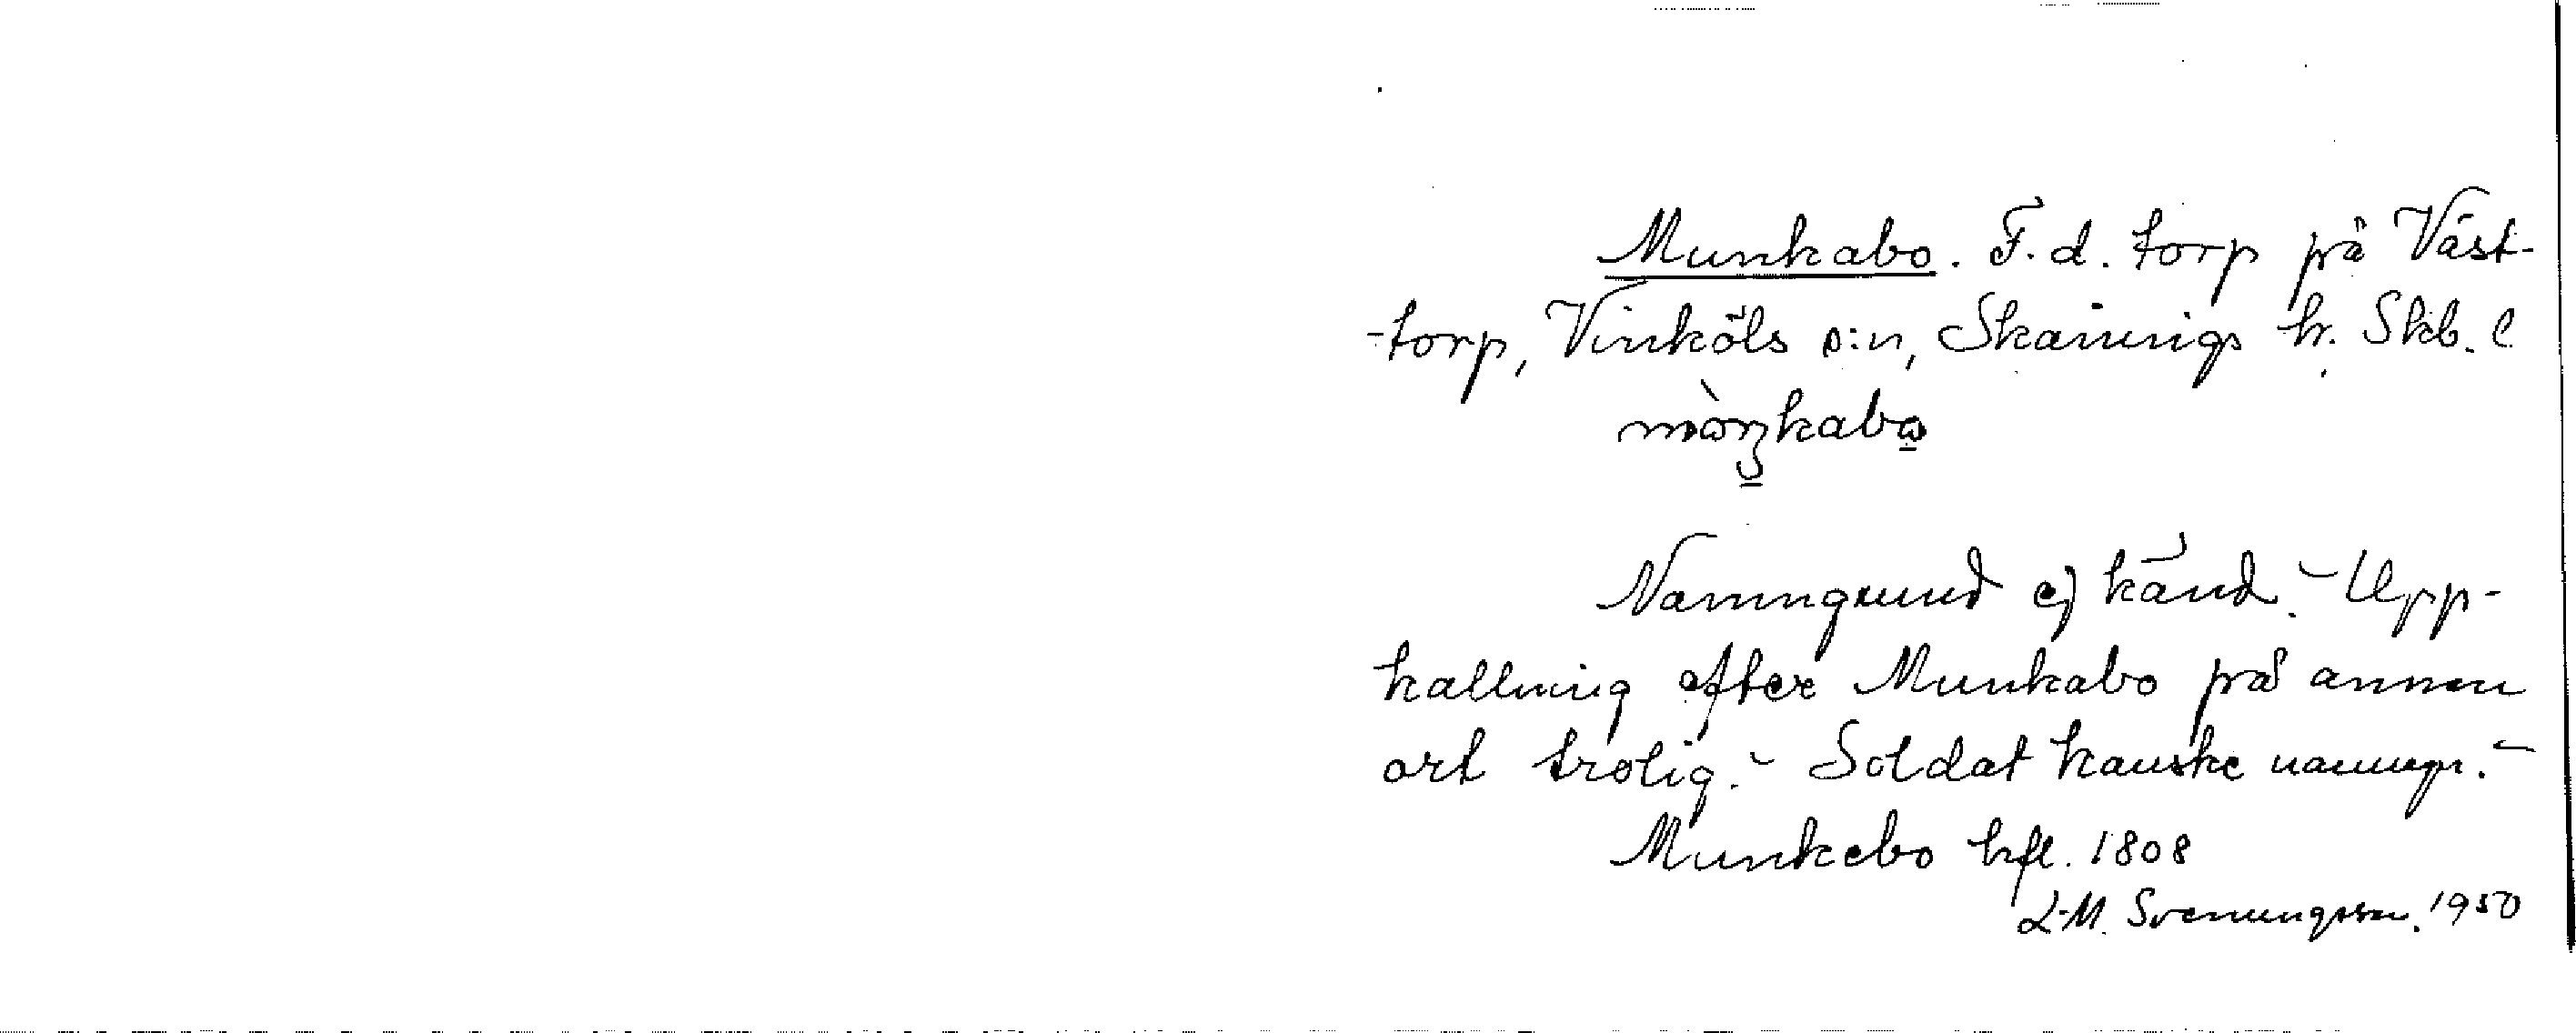 Munkabo. F. d. torp på Väst-
-torp, Vinköls s:n, Skånings hr. Skb. l
mòŋkabo
Namngrund ej känd. - Upp-
kallning efter Munkabo på annan
ort trolig. - Soldat kanske namngr. -
Munkebo hfl. 1808
L-M. Svenungsson. 1950